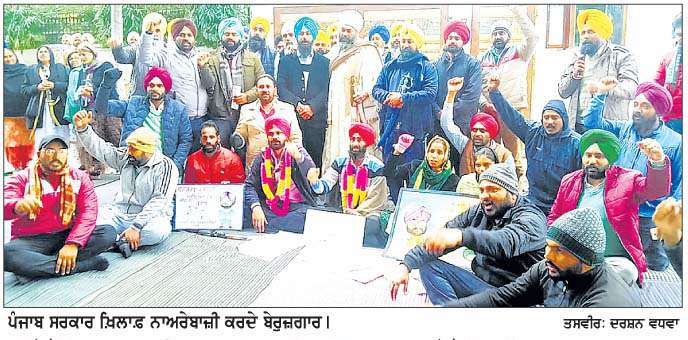 ਪੰਜਾਬ ਸਰਕਾਰ ਖ਼ਿਲਾਫ਼ ਨਾਅਰੇਬਾਜ਼ੀ ਕਰਦੇ ਬੇਰੁਜ਼ਗਾਰ। ਤਸਵੀਰ: ਦਰਸ਼ਨ ਵਧਵਾ